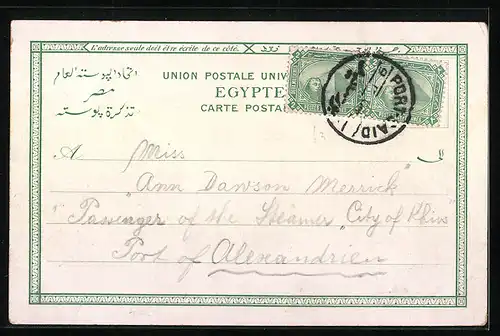 L'adresse seule doit être écrite de ce côté.
اتحاد البوسته العام
مصر
تذكرة بوسته
UNION POSTALE UNIV
EGYPTE
CARTE POSTA
PORT SAID
A Miss
"Ann Dawson Merrick"
"Passenger of the Steamer "City of Khios"
Port of Alexandrien